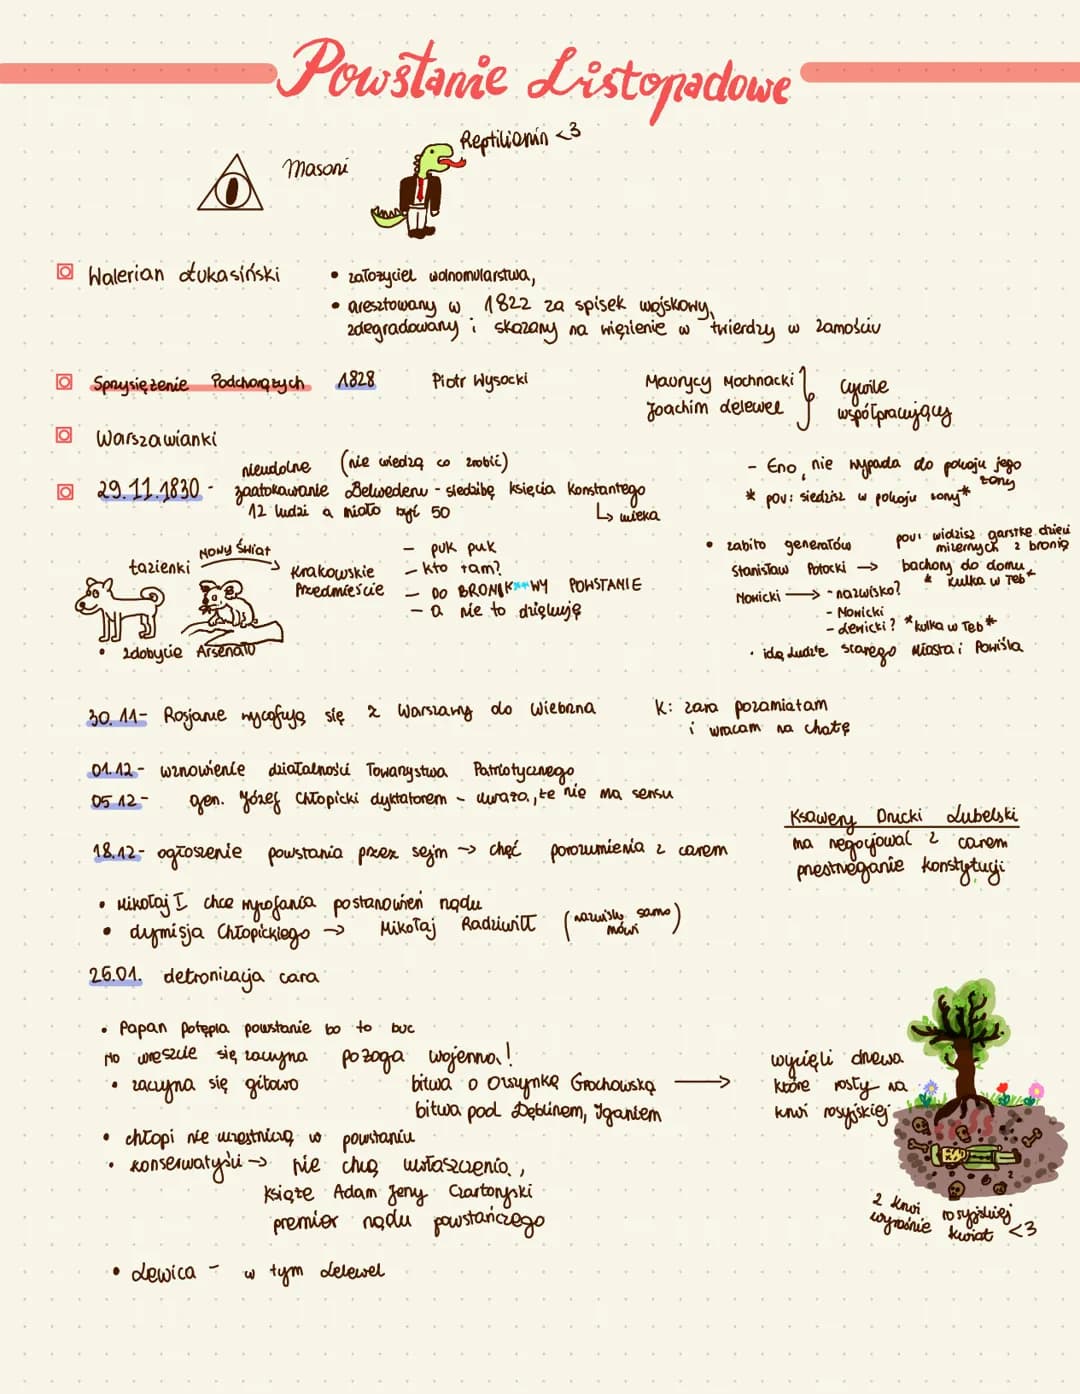 Powstanie Listopadowe
Masoni
Reptilianin <3
Walerian Łukasiński
• założyciel wolnomularstwa,
• aresztowany w 1822 za spisek wojskowy,
zdegradowany i skazany na więzienie w twierdzy w Zamościu
Sprzysiężenie Podchorążych 1828 Piotr Wysocki
Maurycy Mochnacki
Joachim Lelewel
Cywile
współpracujący
Warszawianki
29.11.1830 -
nieudolne (nie wiedzą co zrobić)
zaatakowanie Belwederu - siedzibę księcia Konstantego
12 ludzi a miało być 50
↳ ucieka
- Eno, nie wypada do pokoju jego
żony
* pov: siedzisz w pokoju żony*
Łazienki
Nowy Świat
Krakowskie
Przedmieście
- puk puk
- kto tam?
- DO BRONI K***WY POWSTANIE
- a nie to dziękuję
• zdobycie Arsenału
• zabito generałów
Stanisław Potocki →
pov: widzisz garstkę dzieci
miernych z bronią
bachory do domu
* kulka w łeb*
Nowicki → - nazwisko?
- Nowicki
- Lewicki? *kulka w łeb*
• idą ludzie Starego Miasta i Powiśla
30.11- Rosjanie wycofują się z Warszawy do Wierzbna
K: zara pozamiatam
i wracam na chatę
01.12- wznowienie działalności Towarzystwa Patriotycznego
05.12- gen. Józef Chłopicki dyktatorem - uważa, że nie ma sensu
18.12- ogłoszenie powstania przez sejm → chęć porozumienia z carem
Ksawery Drucki Lubelski
ma negocjować z carem
przestrzeganie konstytucji
• Mikołaj I chce wycofania postanowień rządu
• dymisja Chłopickiego → Mikołaj Radziwiłł (nazwisko samo
mówi)
25.01. detronizacja cara
• Papan potępia powstanie bo to buc
No wreszcie się zaczyna pożoga wojenna!
• zaczyna się gitowo
bitwa o Olszynkę Grochowską →
bitwa pod Dęblinem, Iganiem
wycięli drzewa
które rosły na
krwi rosyjskiej
• chłopi nie uczestniczą w powstaniu
• konserwatyści → nie chcą uwłaszczenia,
książę Adam Jerzy Czartoryski
premier rządu powstańczego
z krwi rosyjskiej
wyrośnie kwiat <3
• Lewica - w tym Lelewel